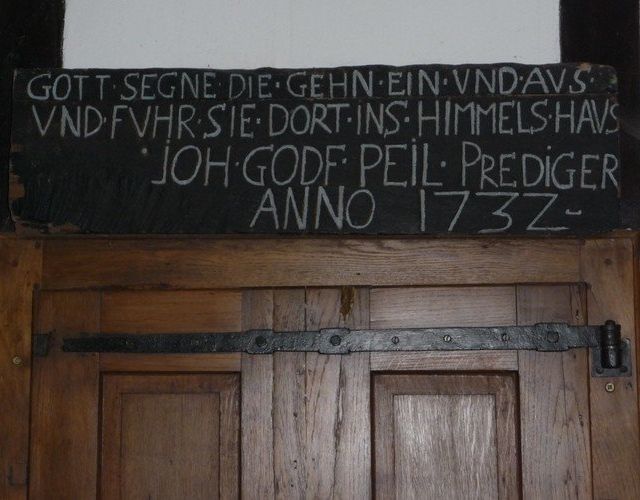 GOTT·SEGNE DIE·GEHN·EIN·VND·AVS·
VND·FVHR·SIE·DORT·INS·HIMMELS·HAVS
JOH·GODF·PEIL·PREDIGER
ANNO 1732-